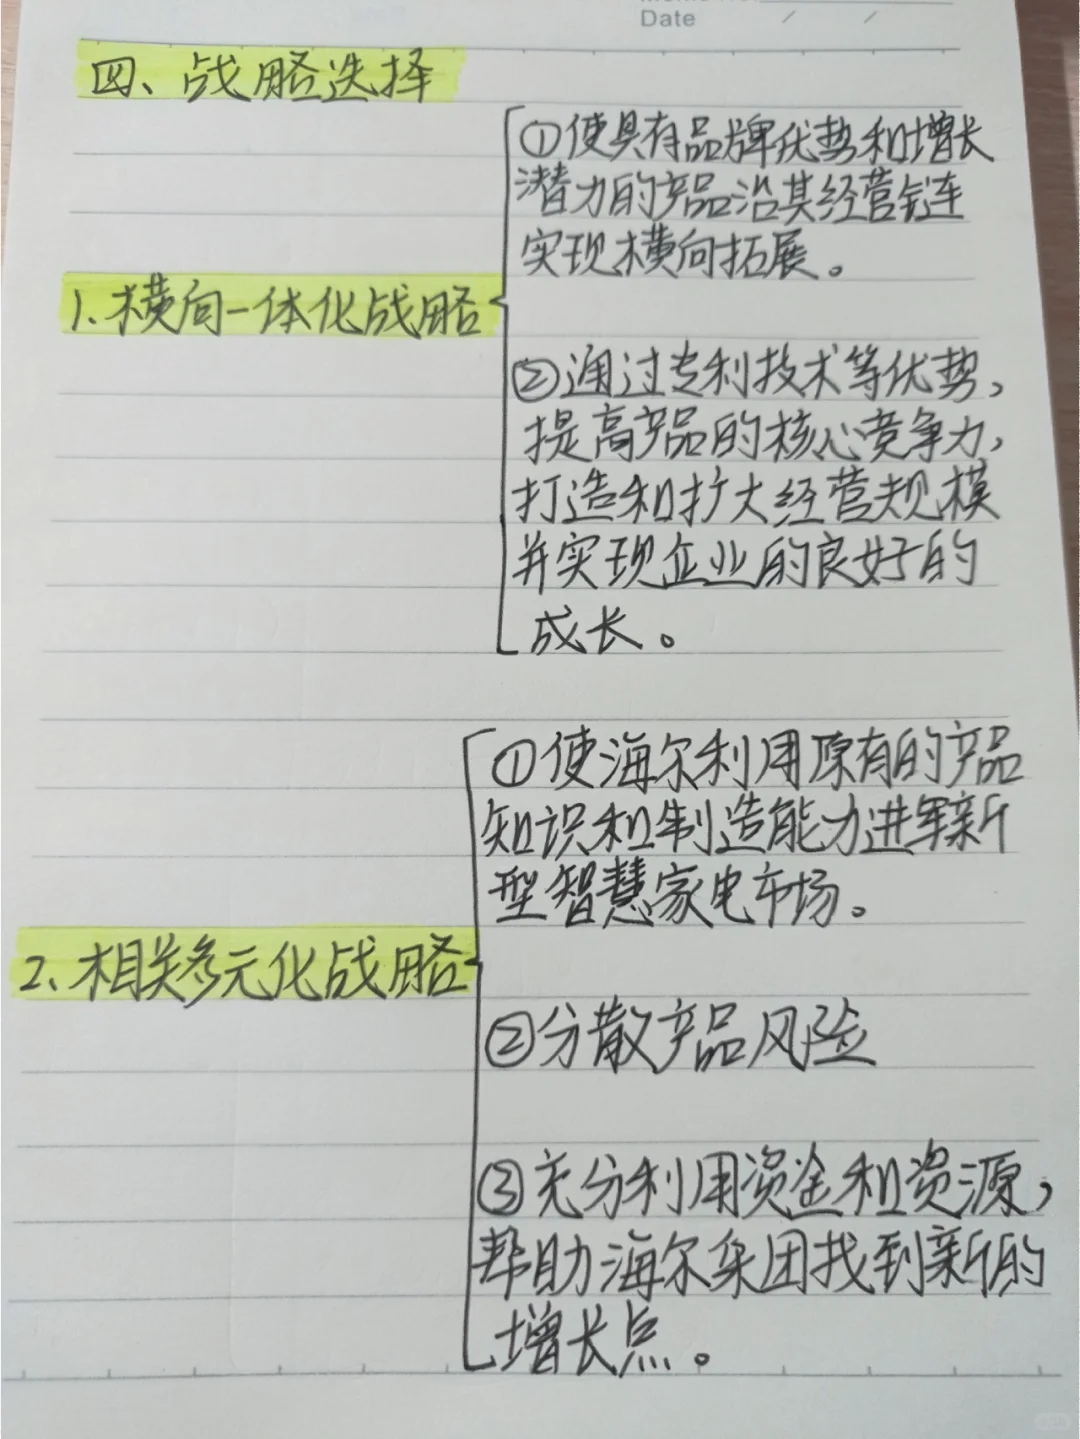 Date / /
四、战略选择
①使具有品牌优势和增长
潜力的产品沿其经营链
实现横向拓展。
1.横向一体化战略
②通过专利技术等优势,
提高产品的核心竞争力,
打造和扩大经营规模
并实现企业的良好的
成长。
①使海尔利用原有的产品
知识和制造能力进军新
型智慧家电市场。
2、相关多元化战略
②分散产品风险
③充分利用资金和资源,
帮助海尔集团找到新的
增长点。